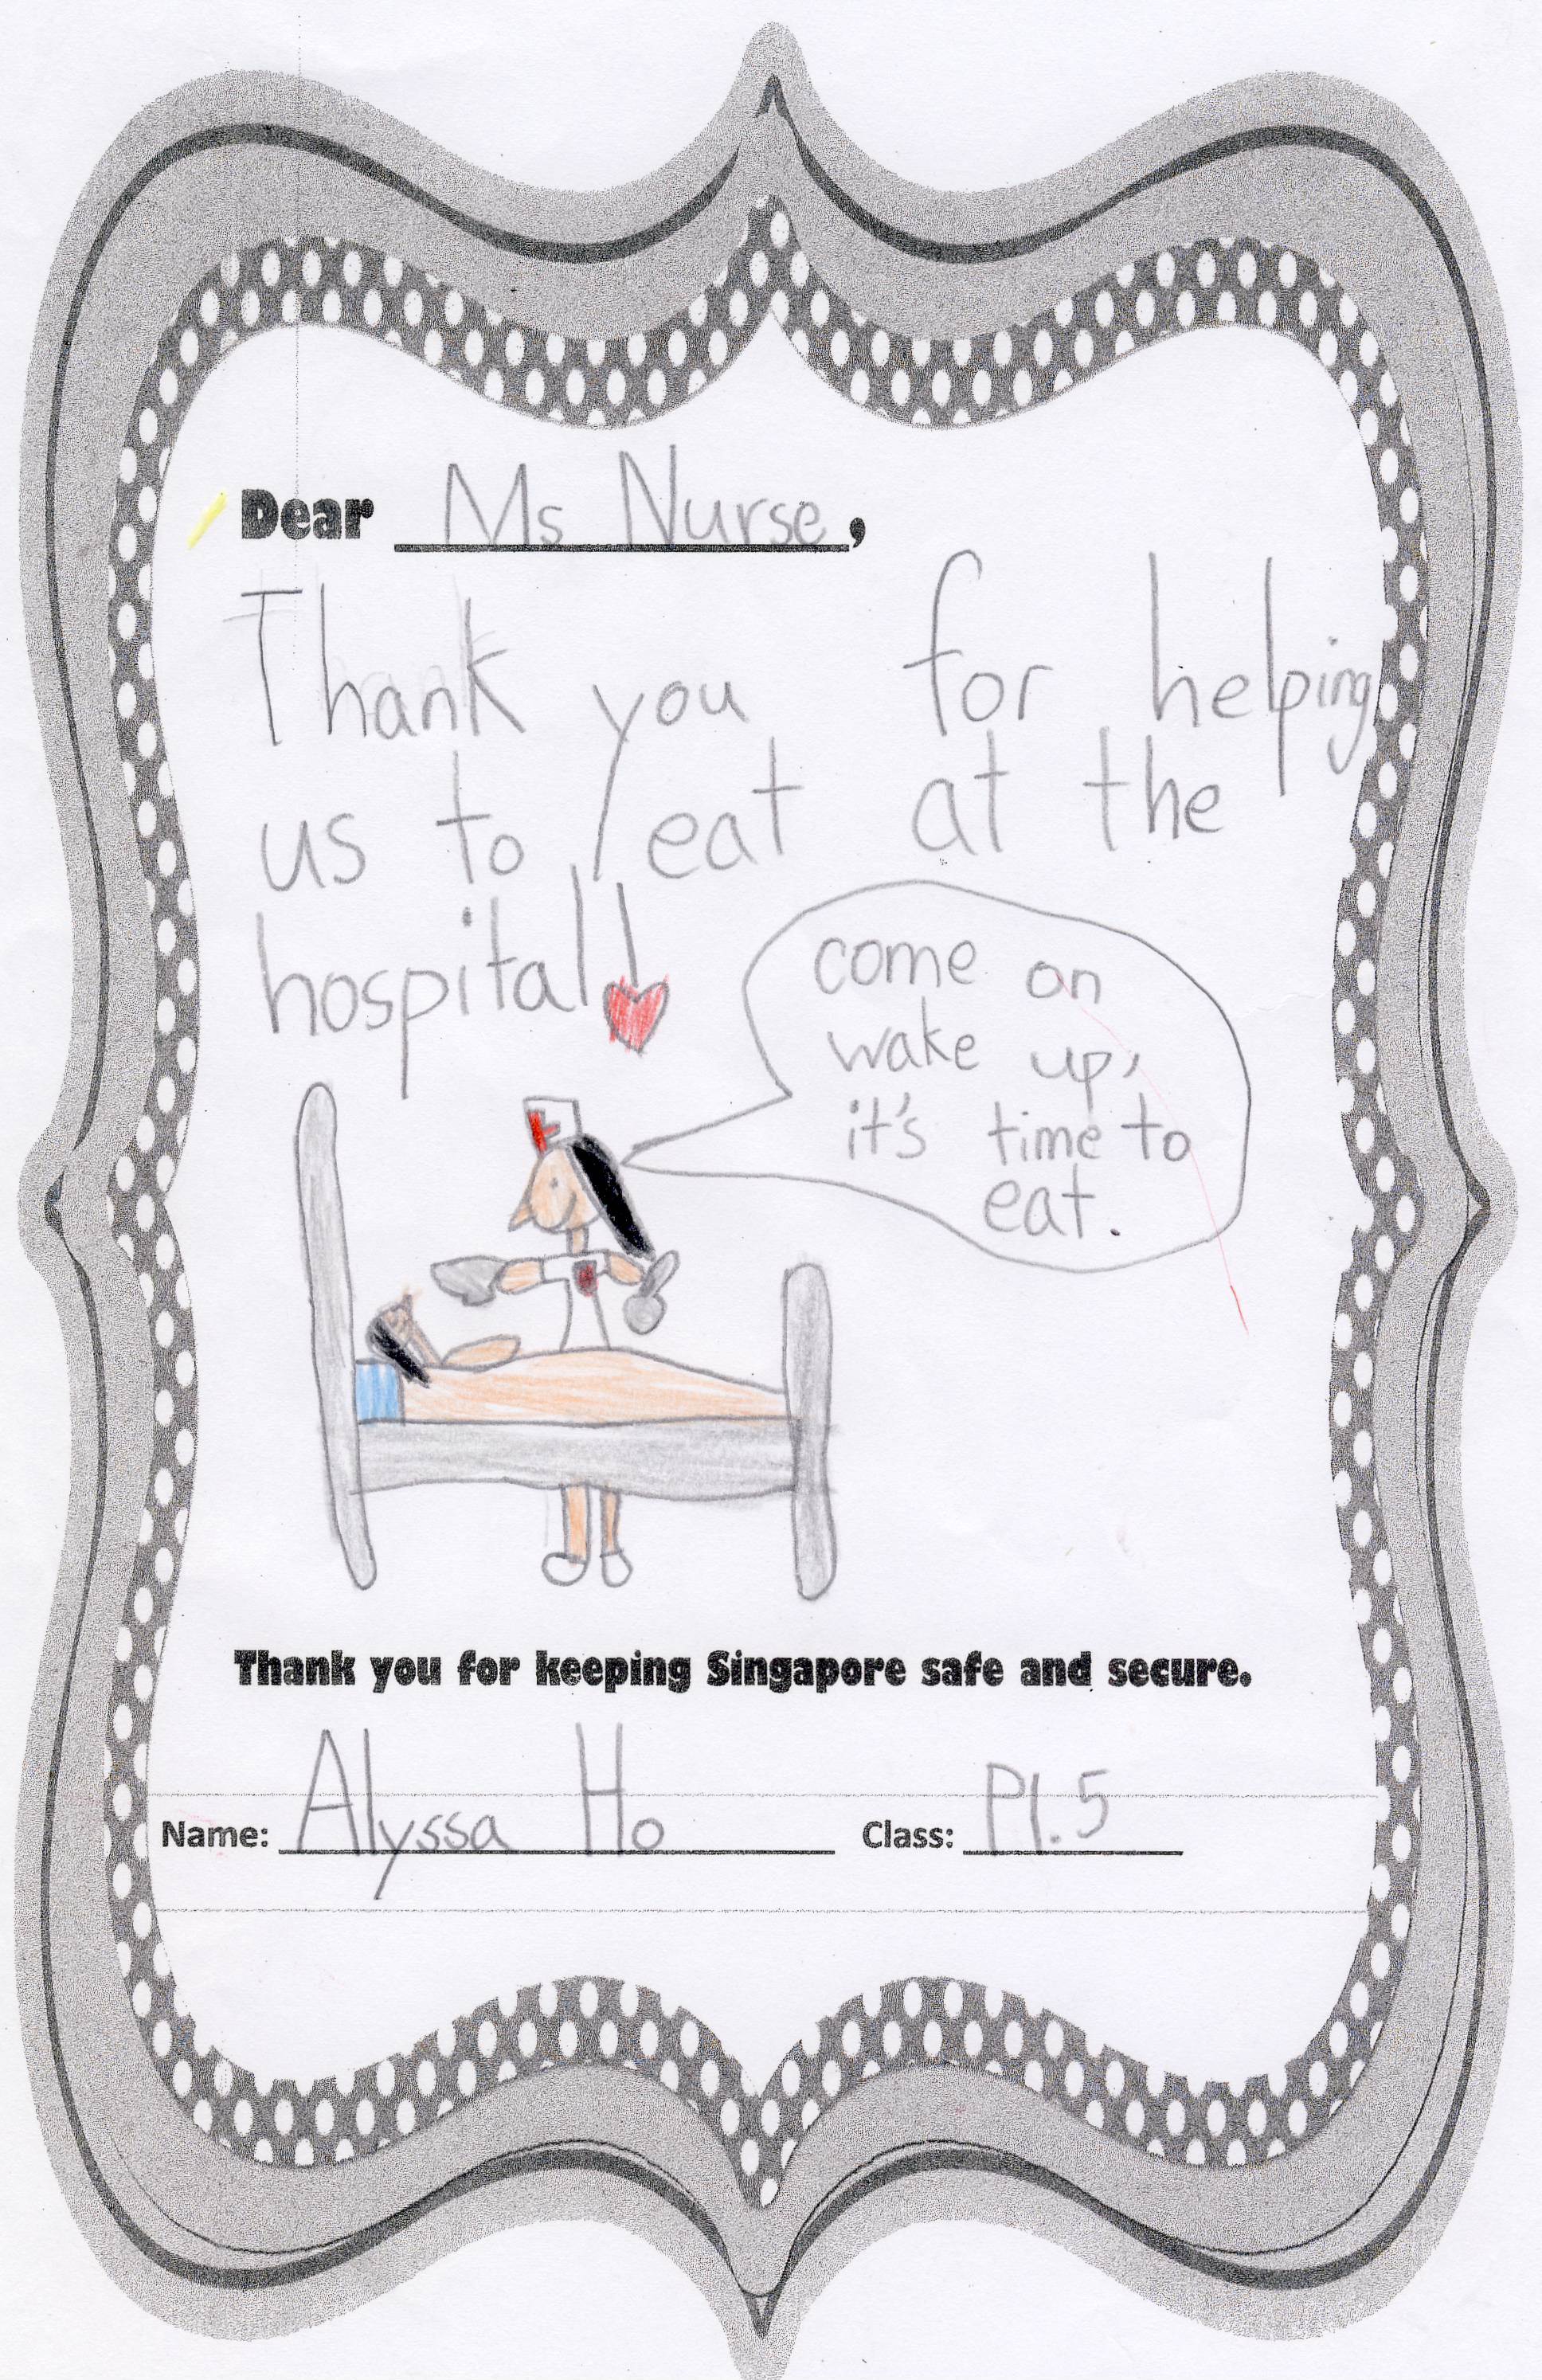 Dear Ms Nurse,
Thank you for helping
us to eat at the
hospital!
come on
wake up,
it's time to
eat.
Thank you for keeping Singapore safe and secure.
Name: Alyssa Ho Class: P1.5